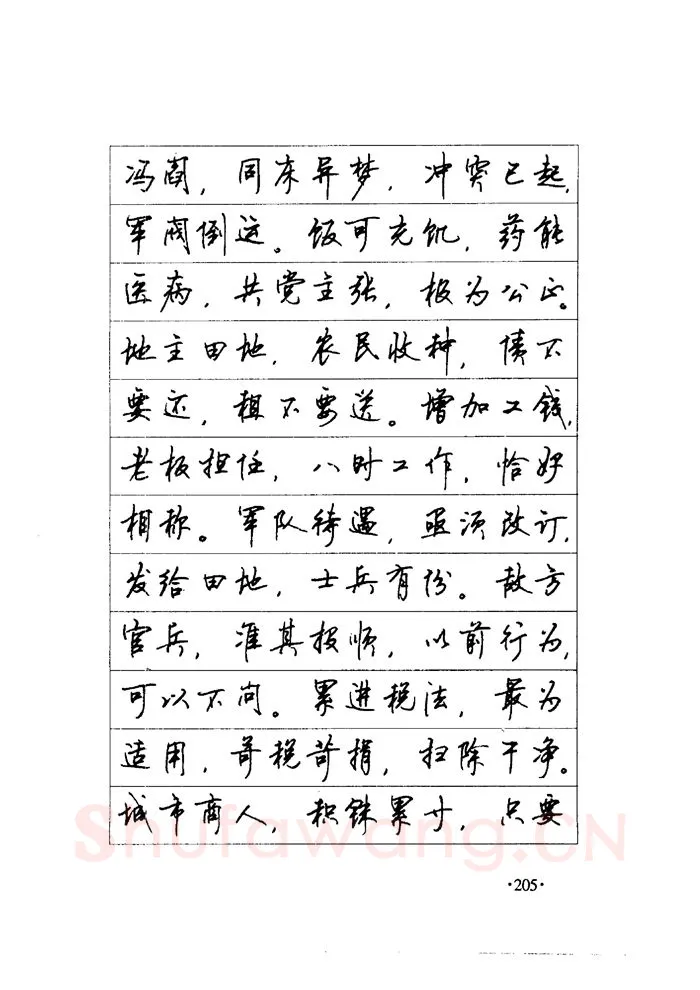 冯阎，同床异梦，冲突已起，
军阀倒运。饭可充饥，药能
医病，共党主张，极为公正。
地主田地，农民收种，债不
要还，租不要送。增加工钱，
老板担任，八时工作，恰好
相称。军队待遇，亟须改订，
发给田地，士兵有份。敌方
官兵，准其投顺，以前行为，
可以不问。累进税法，最为
适用，苛税苛捐，扫除干净。
城市商人，积铢累寸，只要
Shufawang.CN
·205·